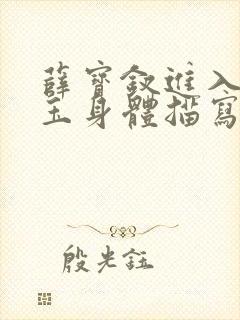 薛寶釵進入
玉身體描寫
殷光鈺